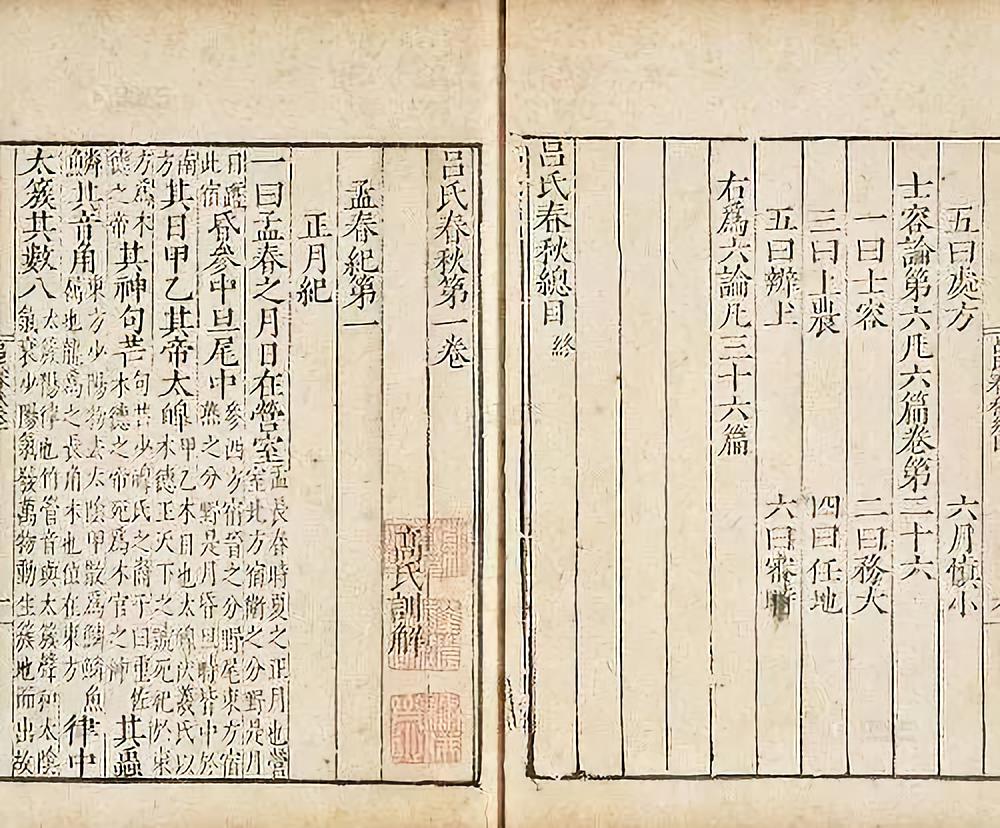 五曰處方 六月慎小
士容論第六凡六篇卷第二十六
一曰士容 二曰務大
三曰上農 四曰任地
五曰辨土 六曰審時
右爲六論凡三十六篇
呂氏春秋總目 終
呂氏春秋第一卷
高氏訓解
孟春紀第一
正月紀
一曰孟春之月日在營室 孟長春時夏之正月也營 室北方宿衞之分野是月
日躔此宿 昏參中旦尾中 參西方宿晉之分野尾東方宿 燕之分野是月昏旦時皆中於
南方 其日甲乙其帝太皞 甲乙木日也太皞伏羲氏以 木德王天下之號死祀於東
方爲木德之帝 其神句芒 句芒少皞氏之裔子曰重佐 木德之帝死爲木官之神 其蟲
鱗其音角 東方少陽物去太陰甲散爲鱗鱗魚 屬也龍爲之長角木也位在東方 律中
太蔟其數八 太蔟陽律也竹管音與太蔟聲和太陰 氣衰少陽氣發萬物動生蔟地而出故